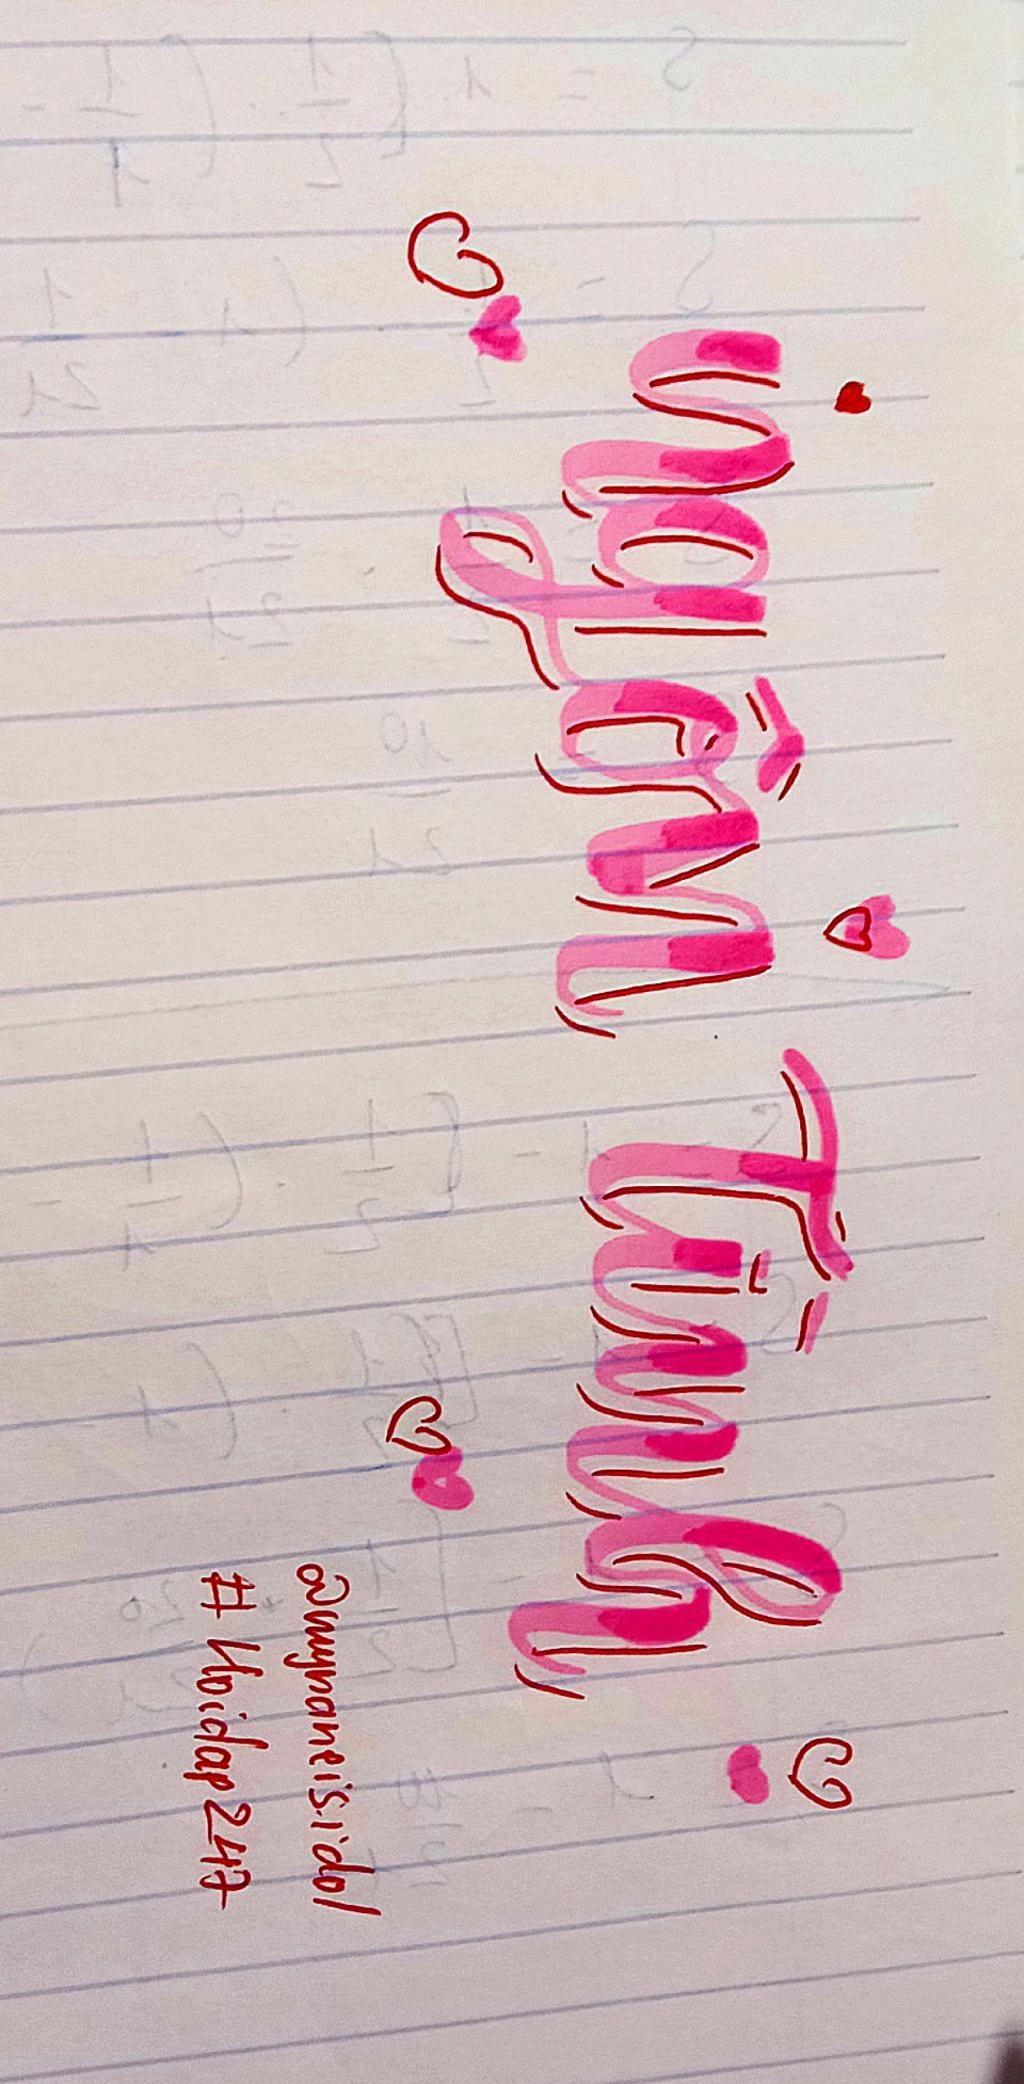 ngôn Tình
@mynameis.idol
#Hoidap247